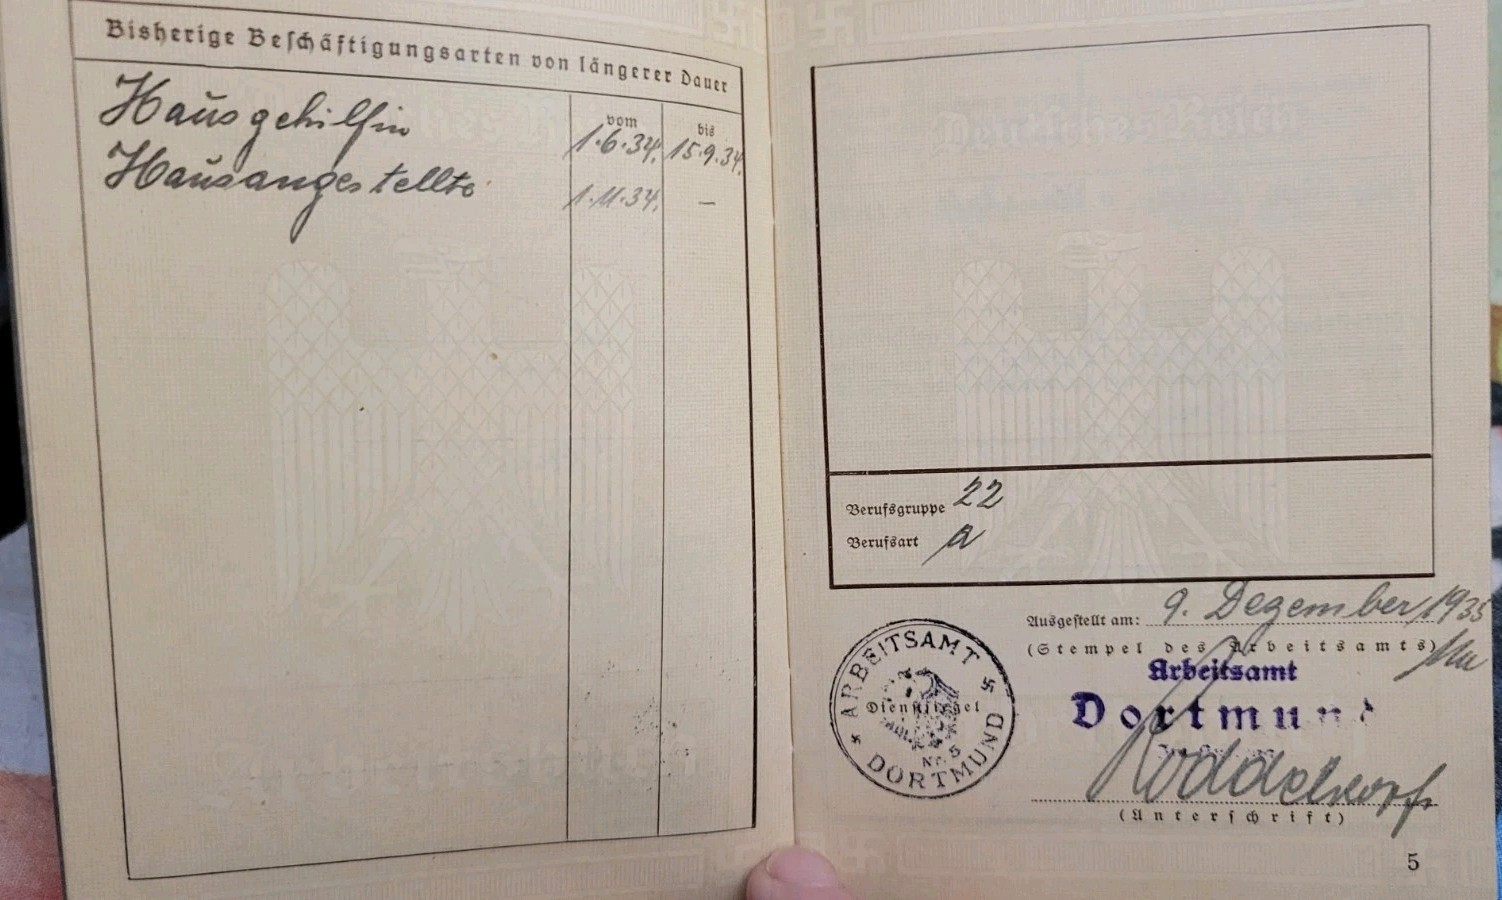 Bisherige Beschäftigungsarten von längerer Dauer
vom bis
Hausgehilfin 1.6.34. 15.9.34.
Hausangestellte 1.11.34. —
Deutsches Reich
Berufsgruppe 22
Berufsart a
Ausgestellt am: 9. Dezember 1935
(Stempel des Arbeitsamts)
Arbeitsamt
Dortmund
ARBEITSAMT
Dienstsiegel
Nr. 5
DORTMUND
(Unterschrift)
5